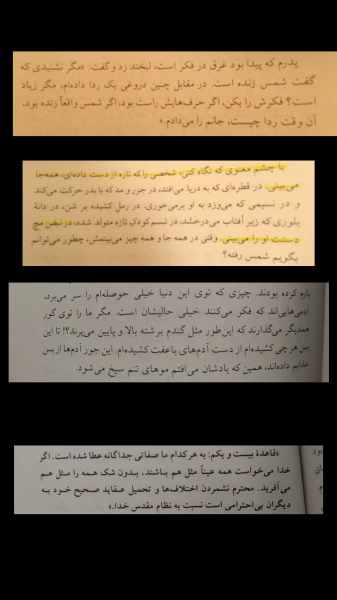 پدرم که پیدا بود غرق در فکر است، لبخند زد و گفت: «مگر نشنیدی که
گفت شمس زنده است. در مقابل چنین دروغی یک ردا داده‌ام، مگر زیاد
است؟ فکرش را بکن، اگر حرف‌هایش راست بود، اگر شمس واقعاً زنده بود،
آن وقت ردا چیست، جانم را می‌دادم.»
با چشم معنوی که نگاه کنی، شخصی را که تازه از دست داده‌ای، همه‌جا
می‌بینی. در قطره‌ای که به دریا می‌افتد، در جزر و مد که با بدر حرکت می‌کند
و در نسیمی که می‌وزد به او برمی‌خوری. در رمل کشیده بر شن، در دانهٔ
بلوری که زیر آفتاب می‌درخشد، در تبسم کودک تازه متولد شده، در نبض مچ
دستت او را می‌بینی. وقتی در همه جا و همه چیز می‌بینمش، چطور می‌توانم
بگویم شمس رفته؟
بازم کرده بودند. چیزی که توی این دنیا خیلی حوصله‌ام را سر می‌برد،
آدم‌هایی‌اند که فکر می‌کنند خیلی حالیشان است. مگر ما را توی گور
همدیگر می‌گذارند که این‌طور مثل گندم برشته بالا و پایین می‌پرند؟! تا این
سن هر چی کشیده‌ام از دست آدم‌های باعفت کشیده‌ام. این جور آدم‌ها از بس
عذابم داده‌اند، همین که یادشان می‌افتم موهای تنم سیخ می‌شود.
«قاعدهٔ بیست و یکم: به هرکدام ما صفاتی جداگانه عطا شده است. اگر
خدا می‌خواست همه عیناً مثل هم باشند، بدون شک همه را مثل هم
می‌آفرید. محترم نشمردن اختلاف‌ها و تحمیل عقاید صحیح خود به
دیگران بی‌احترامی است نسبت به نظام مقدس خدا.»